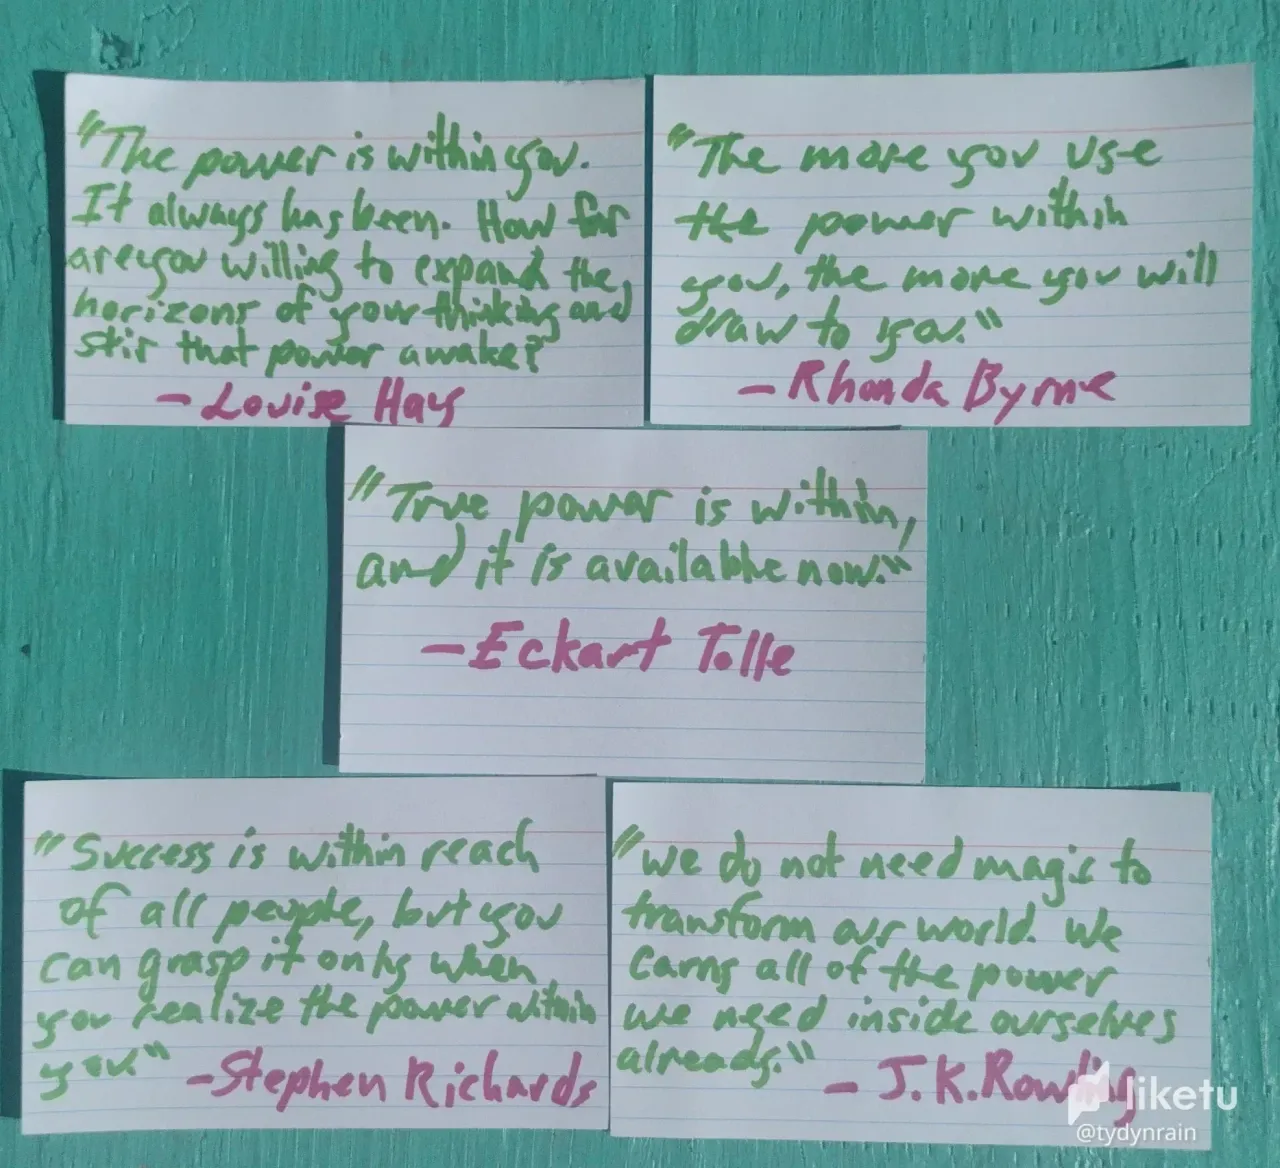 "The power is within you.
It always has been. How far
are you willing to expand the
horizons of your thinking and
stir that power awake?
- Louise Hay
"The more you use
the power within
you, the more you will
draw to you."
- Rhonda Byrne
"True power is within,
and it is available now."
- Eckart Tolle
"Success is within reach
of all people, but you
can grasp it only when
you realize the power within
you."
- Stephen Richards
"We do not need magic to
transform our world. We
carry all of the power
we need inside ourselves
already."
- J.K. Rowling
liketu
@tydynrain